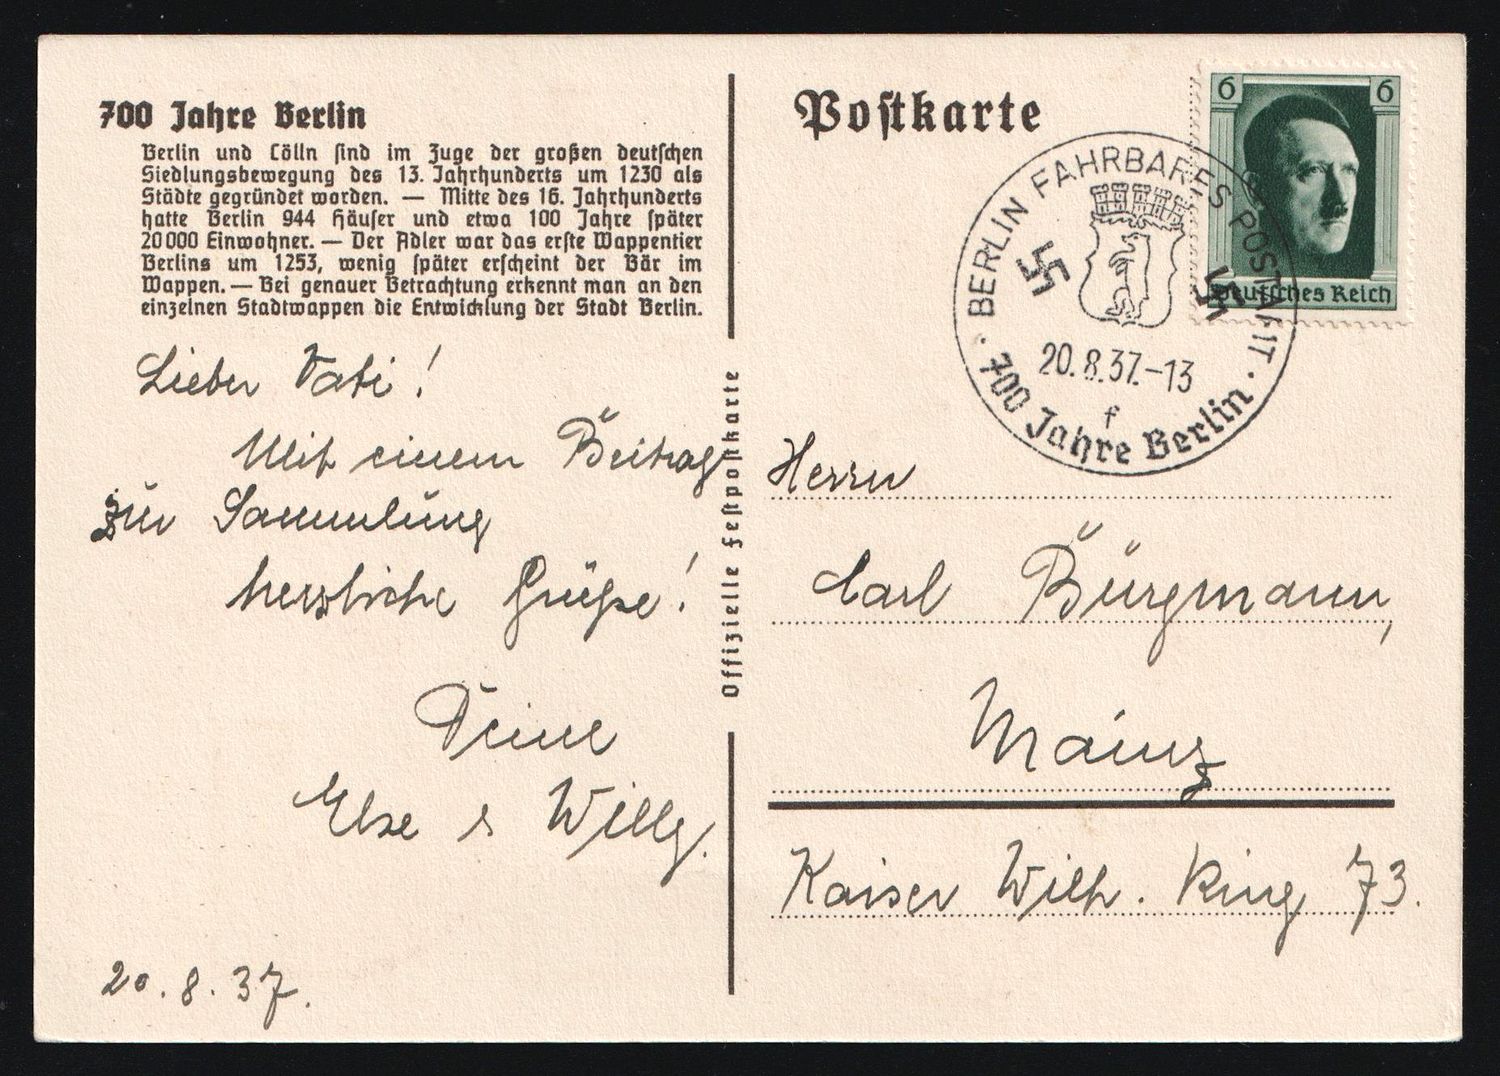 700 Jahre Berlin
Berlin und Cölln sind im Zuge der großen deutschen
Siedlungsbewegung des 13. Jahrhunderts um 1230 als
Städte gegründet worden. — Mitte des 16. Jahrhunderts
hatte Berlin 944 Häuser und etwa 100 Jahre später
20000 Einwohner. — Der Adler war das erste Wappentier
Berlins um 1253, wenig später erscheint der Bär im
Wappen. — Bei genauer Betrachtung erkennt man an den
einzelnen Stadtwappen die Entwicklung der Stadt Berlin.
Lieber Vati!
Mit einem Beitrag
zur Sammlung
herzliche Grüße!
Deine
Else & Willy.
20.8.37.
Offizielle Festpostkarte
Postkarte
6 6
Deutsches Reich
BERLIN FAHRBARES POSTAMT
20.8.37.-13
f
700 Jahre Berlin
Herrn
Carl Burgmann,
Mainz
Kaiser Wilh. Ring 73.